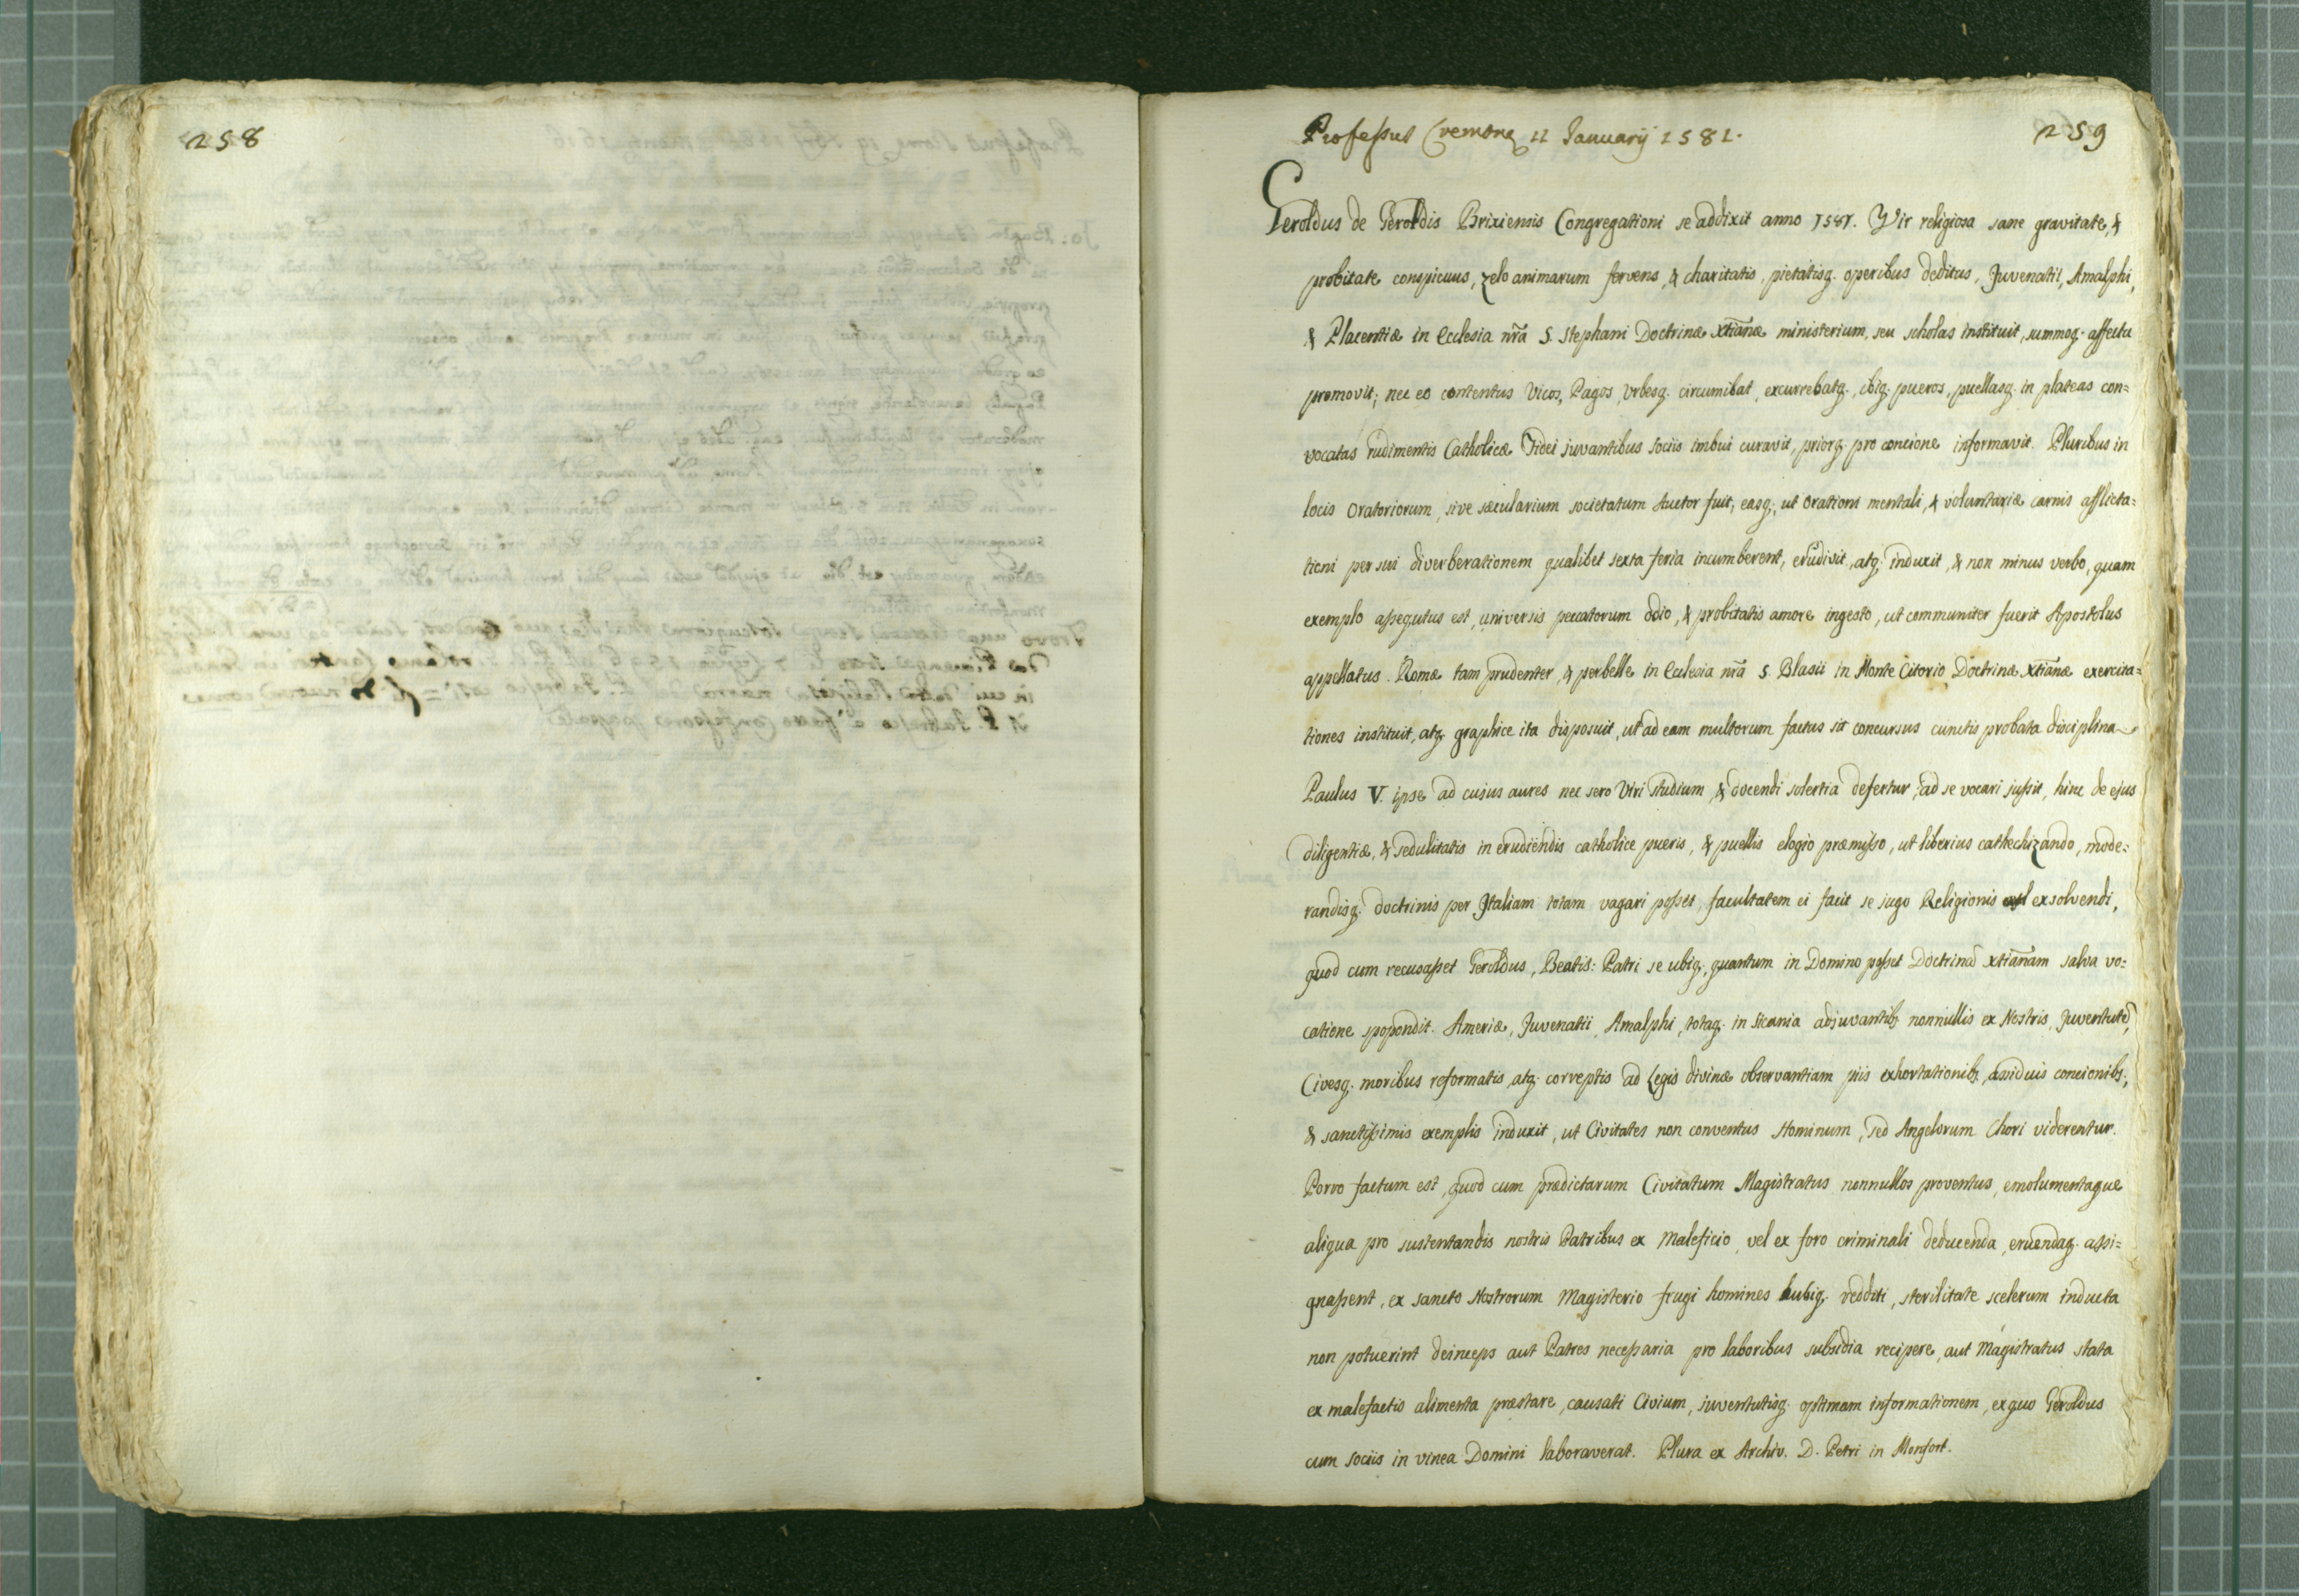 258
259
Professus Cremonę 11 Januarij 1581.
Geroldus de Geroldis Brixiensis Congregationi se addixit anno 1581. Vir religiosa sane gravitate, &
probitate conspicuus, zelo animarum fervens, & charitatis, pietatisq. operibus deditus, Juvenatii, Amalphi,
& Placentiæ in Ecclesia nrã S. Stephani Doctrinæ Xtianæ ministerium, seu scholas instituit, summoq. affectu
promovit; nec eo contentus Vicos, Pagos, Urbesq. circumibat, excurrebatq., ibiq. pueros, puellasq. in plateas con=
vocatas rudimentis Catholicæ Fidei juvantibus sociis imbui curavit, priorq. pro concione informavit. Pluribus in
locis Oratoriorum, sive sæcularium societatum Auctor fuit, easq., ut Orationi mentali, & voluntariæ carnis afflicta=
tioni per sui diverberationem qualibet sexta feria incumberent, erudivit, atq. induxit, & non minus verbo, quam
exemplo assequtus est, universis peccatorum odio, & probitatis amore ingesto, ut communiter fuerit Apostolus
appellatus. Romæ tam prudenter, & perbelle in Ecclesia nrã S. Blasii in Monte Citorio Doctrinæ Xtianæ exercita=
tiones instituit, atq. graphice ita disposuit, ut ad eam multorum factus sit concursus cunctis probata disciplina
Paulus V. ipse ad cujus aures nec sero Viri studium, & docendi solertia defertur, ad se vocari jussit, hinc de ejus
diligentiæ, & sedulitatis in erudiendis catholice pueris, & puellis elogio præmisso, ut liberius cathechizando, mode=
randisq. doctrinis per Italiam totam vagari posset, facultatem ei facit se jugo Religionis exsolvendi,
quod cum recusasset Geroldus, Beatis: Patri se ubiq., quantum in Domino posset Doctrinã Xtianam salva vo=
catione spopondit. Ameriæ, Juvenatii, Amalphi, totaq. in Sicania adjuvantib. nonnullis ex Nostris, Juventutẽ,
Civesq. moribus reformatis, atq. correptis ad Legis divinæ observantiam piis exhortationib., assiduis concionib.,
& sanctissimis exemplis induxit, ut Civitates non conventus Hominum, sed Angelorum Chori viderentur.
Porro factum est, quod cum prædictarum Civitatum Magistratus nonnullos proventus, emolumentaque
aliqua pro sustentandis nostris Patribus ex Maleficio, vel ex foro criminali deducenda, eruendaq. assi=
gnassent, ex sancto Nostrorum Magisterio frugi homines ubiq. redditi, sterilitate scelerum inducta
non potuerint deinceps aut Patres necessaria pro laboribus subsidia recipere, aut Magistratus stata
ex malefactis alimenta præstare, causati Civium, juventutisq. optimam informationem, ex quo Geroldus
cum sociis in vinea Domini laboraverat. Plura ex Archiv. D. Petri in Monfort.